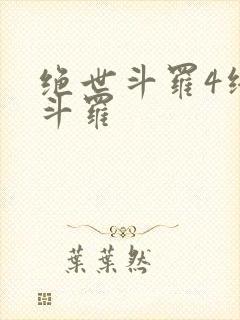 绝世斗罗4绝
斗罗
葉葉然